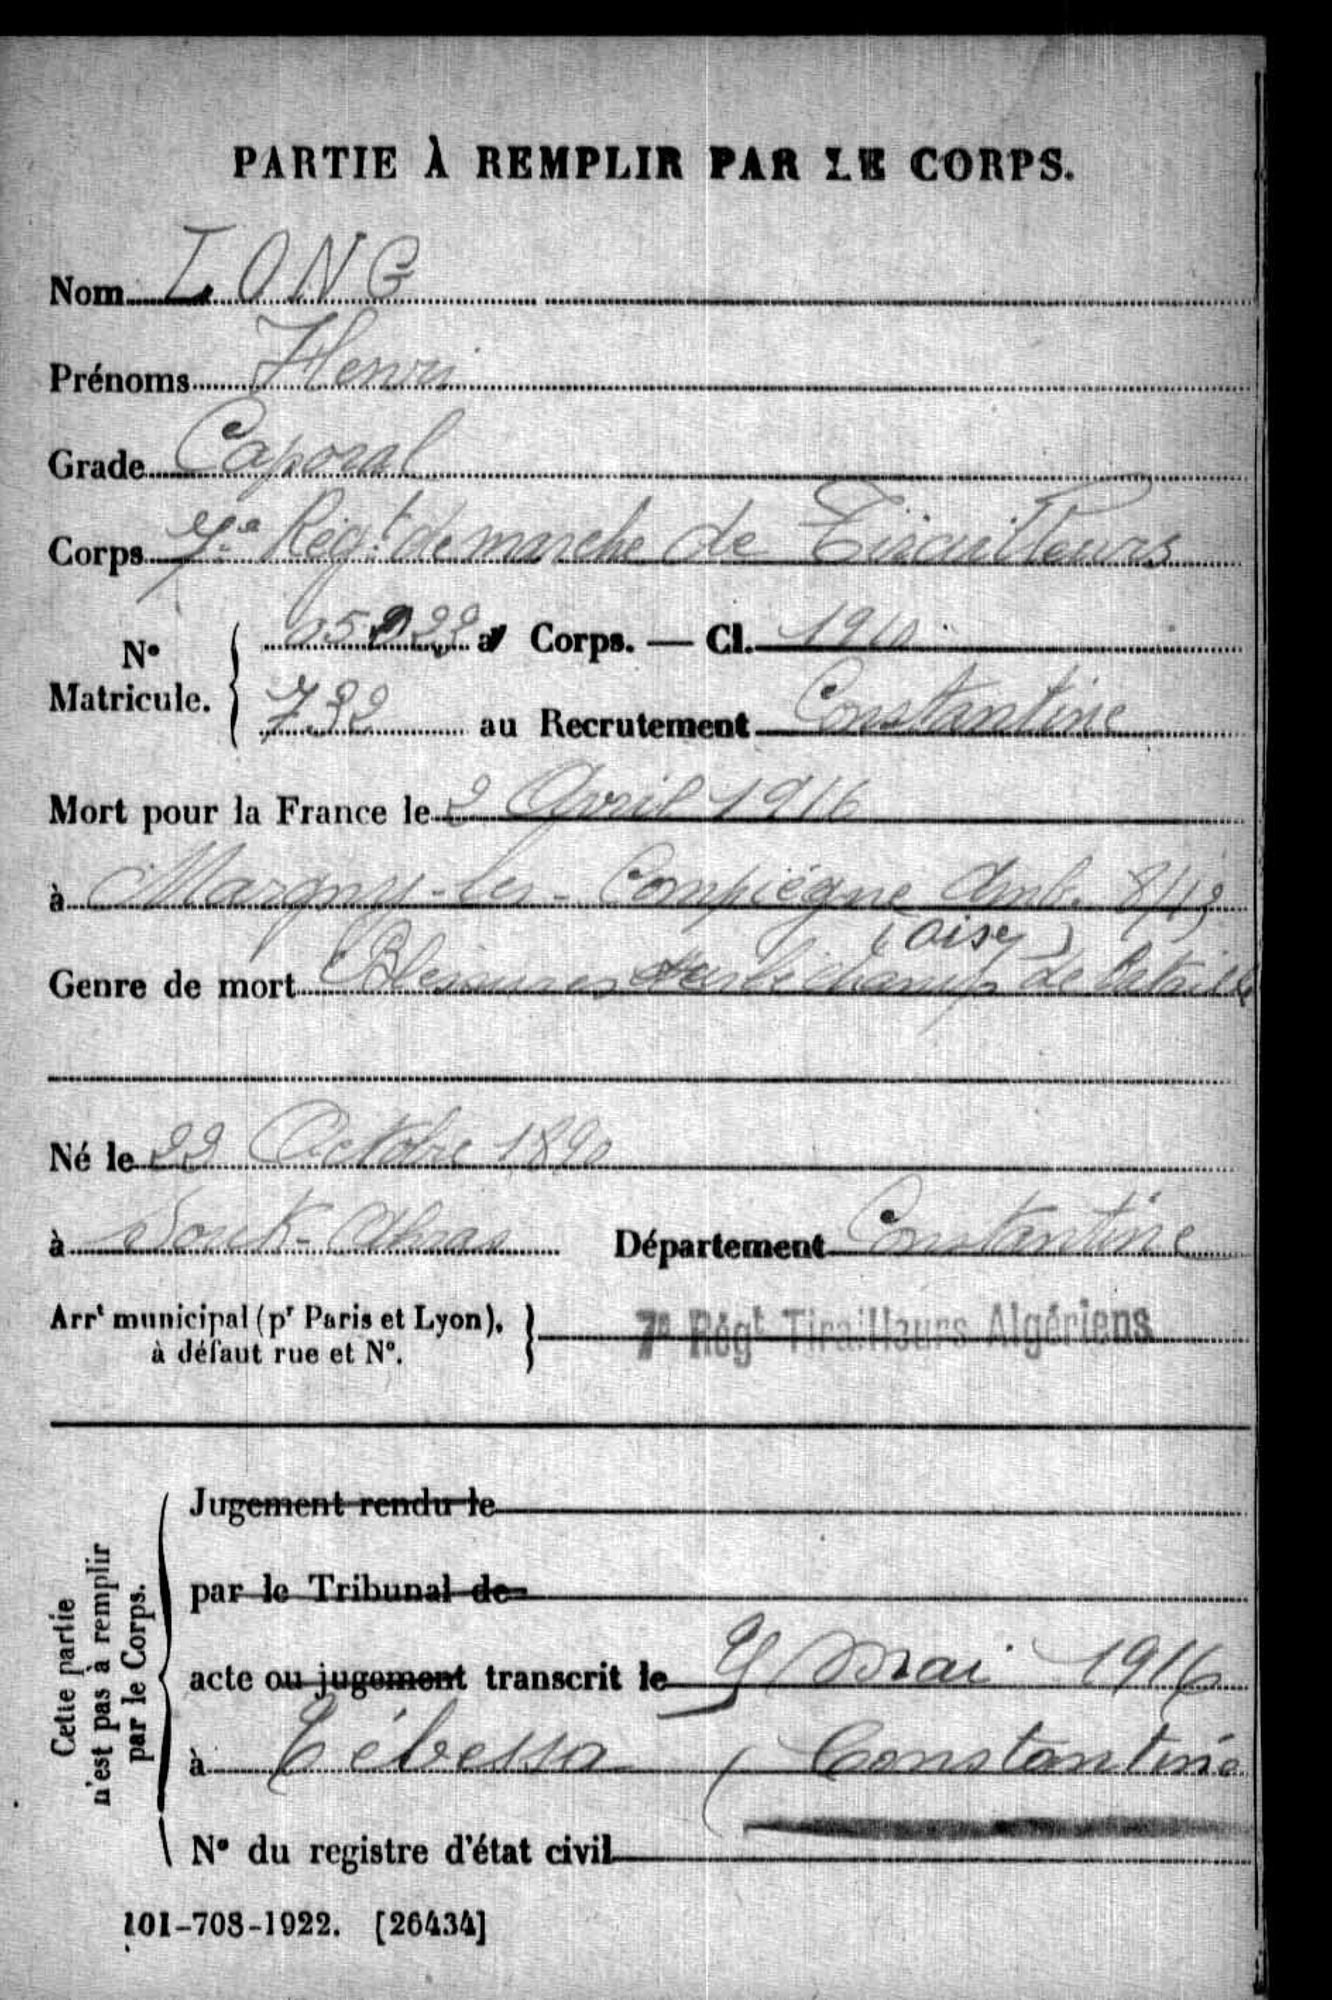 PARTIE À REMPLIR PAR LE CORPS.
Nom LONG
Prénoms Henri
Grade Caporal
Corps 7e Régt de marche de Tirailleurs
N° Matricule. au Corps. — Cl. 1910
732 au Recrutement Constantine
Mort pour la France le 2 Avril 1916
à Margny-les-Compiègne Amb. 8/13
(Oise)
Genre de mort Blessures sur le champ de bataille
Né le 22 Octobre 1890
à Souk-Ahras Département Constantine
Arrt municipal (pr Paris et Lyon),
à défaut rue et N°.
7e Régt Tirailleurs Algériens
Cette partie
n'est pas à remplir
par le Corps.
Jugement rendu le
par le Tribunal de
acte ou jugement transcrit le 9 Mai 1916
à Tébessa (Constantine
N° du registre d'état civil
101-708-1922. [26434]